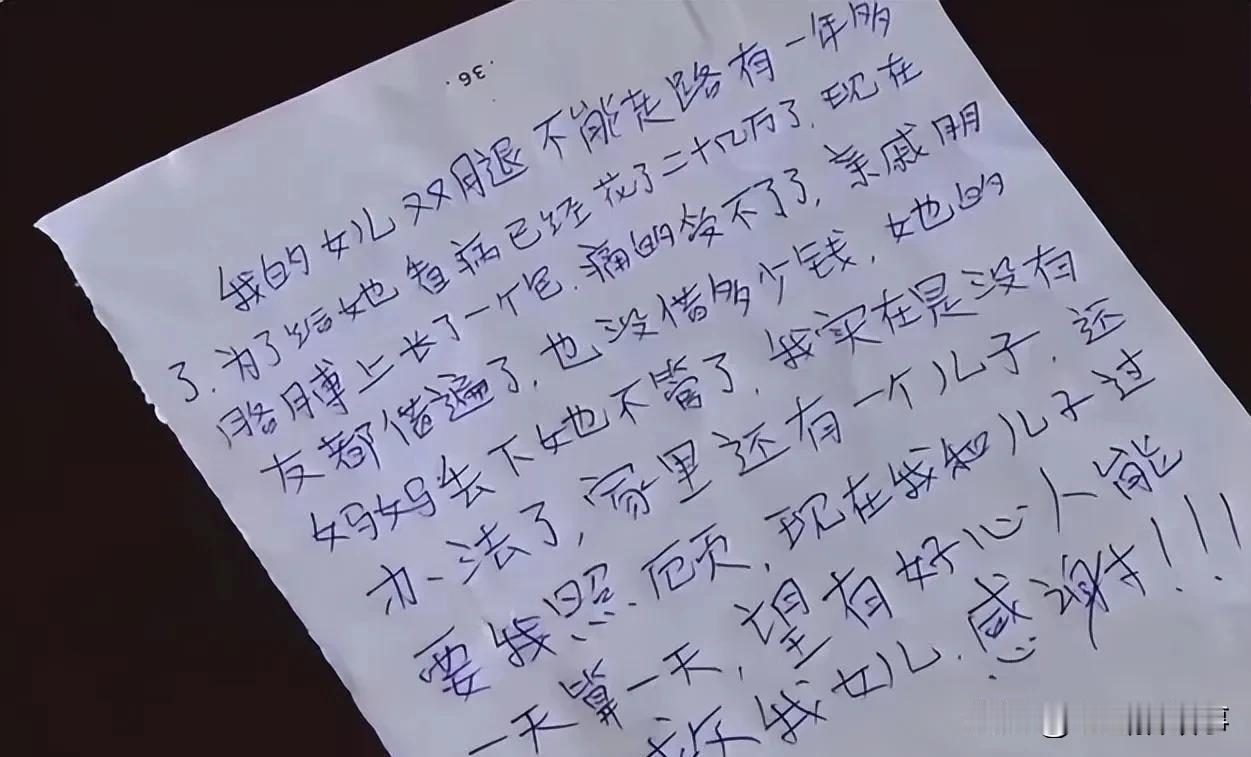 .36.
我的女儿双腿不能走路有一年多
了.为了给她查病已经花了二十几万了.现在
胳膊上长了一个包.痛的受不了了,亲戚朋
友都借遍了,也没借多少钱,她的
妈妈丢下她不管了,我实在是没有
办法了,家里还有一个儿子.还
要我照顾,现在我和儿子过
一天算一天,望有好心人能
我女儿.感谢!!!